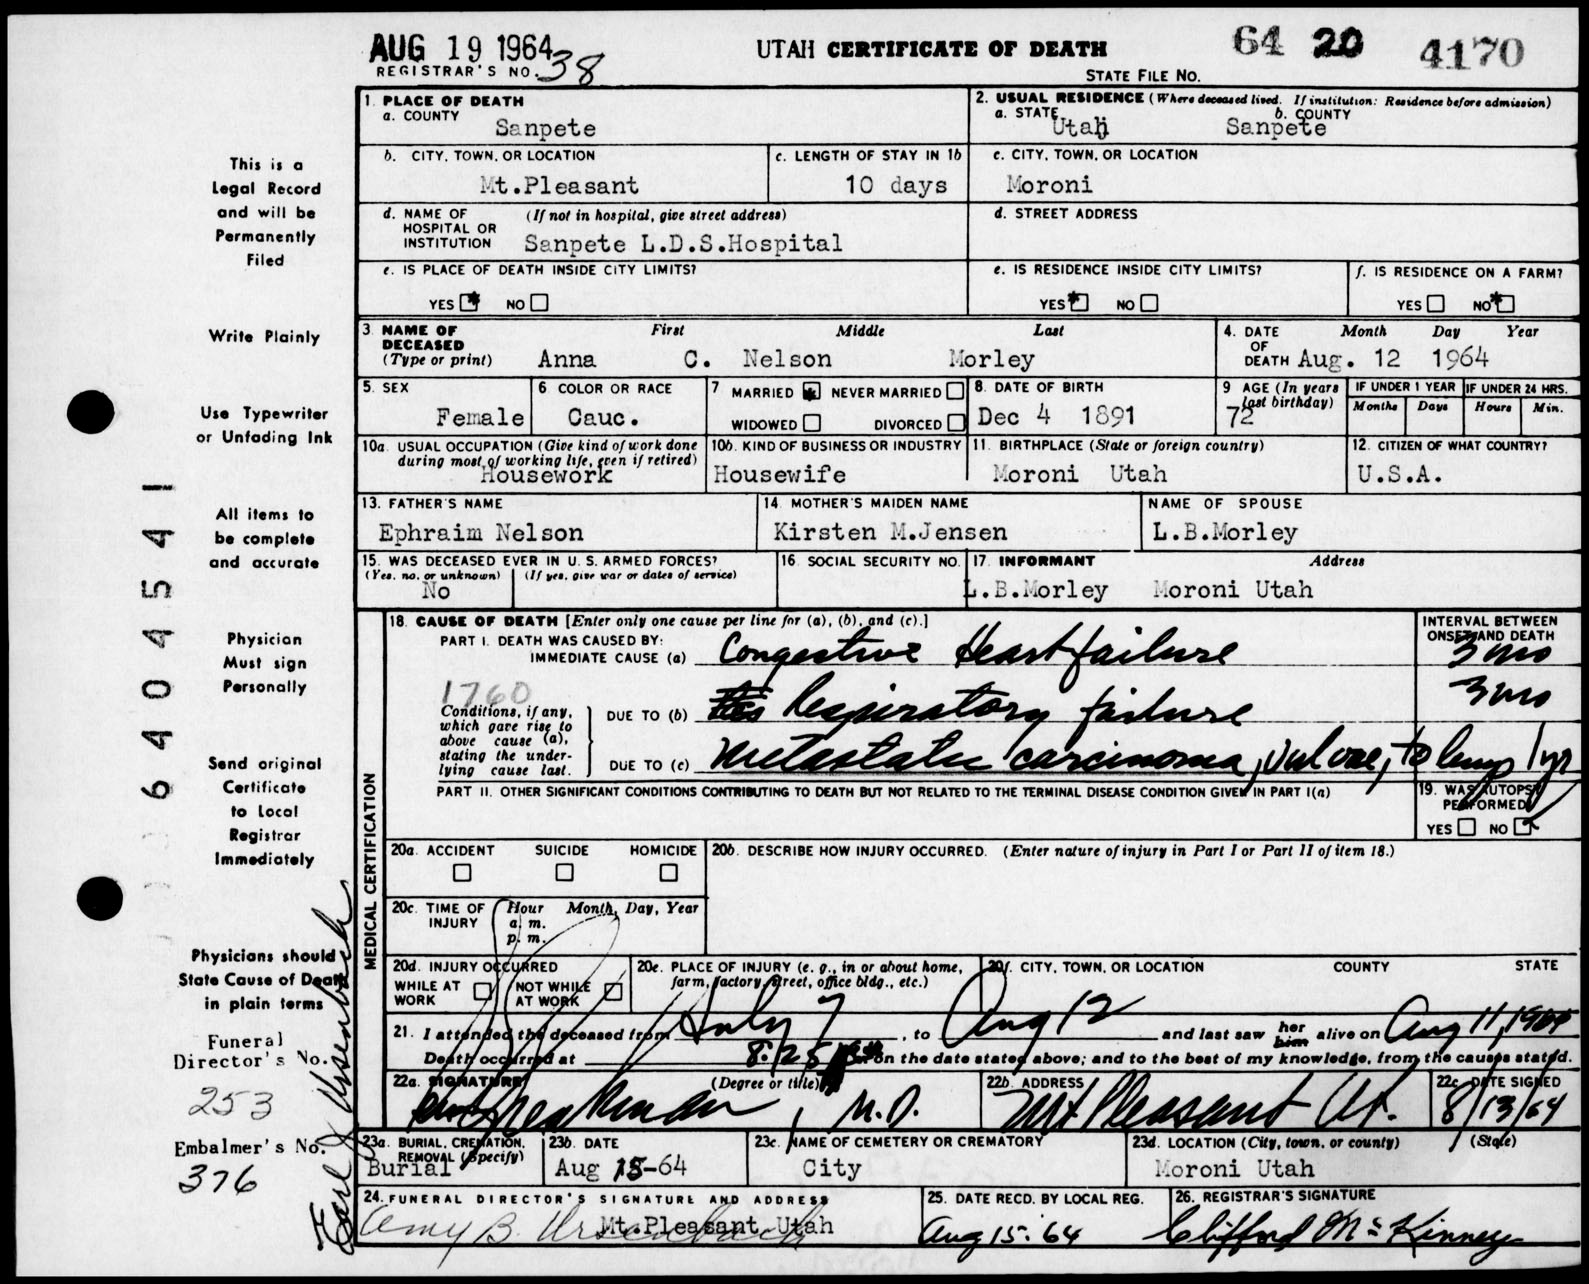 AUG 19 1964
UTAH CERTIFICATE OF DEATH
64 20 4170
REGISTRAR'S NO. 38
STATE FILE No.
1. PLACE OF DEATH
a. COUNTY
Sanpete
2. USUAL RESIDENCE (Where deceased lived. If institution: Residence before admission)
a. STATE b. COUNTY
Utah Sanpete
b. CITY, TOWN, OR LOCATION
Mt.Pleasant
c. LENGTH OF STAY IN 1b
10 days
c. CITY, TOWN, OR LOCATION
Moroni
d. NAME OF HOSPITAL OR INSTITUTION (If not in hospital, give street address)
Sanpete L.D.S.Hospital
d. STREET ADDRESS
e. IS PLACE OF DEATH INSIDE CITY LIMITS?
YES * NO
e. IS RESIDENCE INSIDE CITY LIMITS?
YES * NO
f. IS RESIDENCE ON A FARM?
YES NO *
3. NAME OF DECEASED (Type or print) First Middle Last
Anna C. Nelson Morley
4. DATE OF DEATH Month Day Year
Aug. 12 1964
5. SEX
Female
6 COLOR OR RACE
Cauc.
7 MARRIED * NEVER MARRIED
WIDOWED DIVORCED
8. DATE OF BIRTH
Dec 4 1891
9 AGE (In years last birthday)
72
IF UNDER 1 YEAR IF UNDER 24 HRS.
Months Days Hours Min.
10a. USUAL OCCUPATION (Give kind of work done during most of working life, even if retired)
Housework
10b. KIND OF BUSINESS OR INDUSTRY
Housewife
11. BIRTHPLACE (State or foreign country)
Moroni Utah
12. CITIZEN OF WHAT COUNTRY?
U.S.A.
13. FATHER'S NAME
Ephraim Nelson
14 MOTHER'S MAIDEN NAME
Kirsten M.Jensen
NAME OF SPOUSE
L.B.Morley
15. WAS DECEASED EVER IN U. S. ARMED FORCES?
(Yes, no, or unknown) (If yes, give war or dates of service)
No
16. SOCIAL SECURITY NO.
17. INFORMANT Address
L.B.Morley Moroni Utah
MEDICAL CERTIFICATION
18. CAUSE OF DEATH [Enter only one cause per line for (a), (b), and (c).]
INTERVAL BETWEEN ONSET AND DEATH
PART I. DEATH WAS CAUSED BY:
IMMEDIATE CAUSE (a) Congestive Heart failure 3 mo
1760
Conditions, if any, which gave rise to above cause (a), stating the underlying cause last.
DUE TO (b) Respiratory failure 3 mo
DUE TO (c) metastatic carcinoma, vulvae, to lung 1 yr
PART II. OTHER SIGNIFICANT CONDITIONS CONTRIBUTING TO DEATH BUT NOT RELATED TO THE TERMINAL DISEASE CONDITION GIVEN IN PART I(a)
19. WAS AUTOPSY PERFORMED?
YES NO
20a. ACCIDENT SUICIDE HOMICIDE
20b. DESCRIBE HOW INJURY OCCURRED. (Enter nature of injury in Part I or Part II of item 18.)
20c. TIME OF INJURY Hour Month, Day, Year
a. m.
p. m.
20d. INJURY OCCURRED
WHILE AT WORK NOT WHILE AT WORK
20e. PLACE OF INJURY (e. g., in or about home, farm, factory, street, office bldg., etc.)
20f. CITY, TOWN, OR LOCATION COUNTY STATE
21. I attended the deceased from July 7, to Aug 12 and last saw her him alive on Aug 11, 1964
Death occurred at 8:25 on the date stated above; and to the best of my knowledge, from the causes stated.
22a. SIGNATURE (Degree or title)
M.D.
22b. ADDRESS
Mt Pleasant Ut.
22c. DATE SIGNED
8/13/64
23a. BURIAL, CREMATION, REMOVAL (Specify)
Burial
23b. DATE
Aug 15-64
23c. NAME OF CEMETERY OR CREMATORY
City
23d. LOCATION (City, town, or county) (State)
Moroni Utah
24. FUNERAL DIRECTOR'S SIGNATURE AND ADDRESS
Amy B. Ursenbach
Mt.Pleasant Utah
25. DATE RECD. BY LOCAL REG.
Aug 15-'64
26. REGISTRAR'S SIGNATURE
Clifford McKinney
This is a
Legal Record
and will be
Permanently
Filed
Write Plainly
Use Typewriter
or Unfading Ink
All items to
be complete
and accurate
Physician
Must sign
Personally
Send original
Certificate
to Local
Registrar
Immediately
Physicians should
State Cause of Death
in plain terms
Funeral
Director's No.
253
Embalmer's No.
376
Earl J Ursenbach
6404541